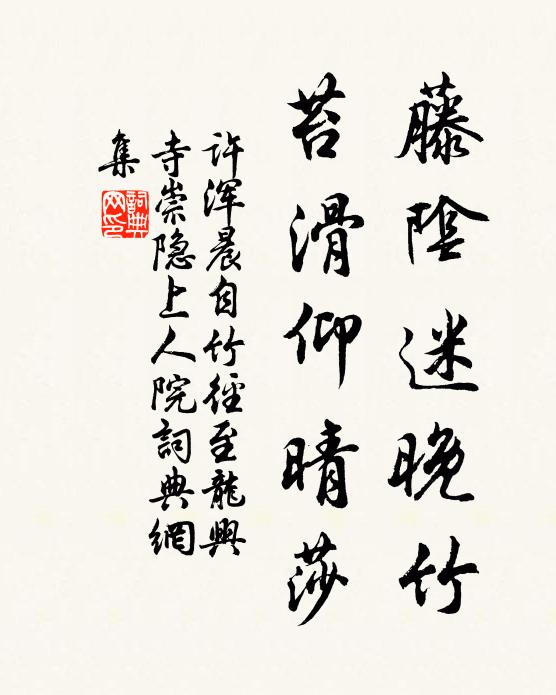 藤陰迷晚竹
苔滑仰晴莎
许渾晨自竹徑至龍興
寺崇隐上人院詞典網
集
詞典
网印